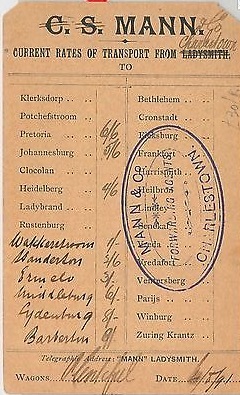 C. S. MANN.
Charlestown
CURRENT RATES OF TRANSPORT FROM LADYSMITH.
TO
Klerksdorp .. ..
Potchefstroom ..
Pretoria .. .. 6/6
Johannesburg .. 5/6
Clocolan .. ..
Heidelberg .. 4/6
Ladybrand .. ..
Rustenburg
Wakkerstroom
Standerton
Ermelo 3/-
Middleburg 6/-
Lydenburg 8/-
Barberton 9/-
Bethlehem .. ..
Cronstadt .. ..
Ficksburg
Frankfort
Harrismith
Heilbron
Lindley
Senekal
Reda
Vredefort
Ventersberg
Parijs .. ..
Winburg .. ..
Zuring Krantz ..
MANN & CO
FORWARDING AGENTS
CHARLESTOWN
Telegraphic Address: "MANN" LADYSMITH.
WAGONS Plentiful DATE /5/91